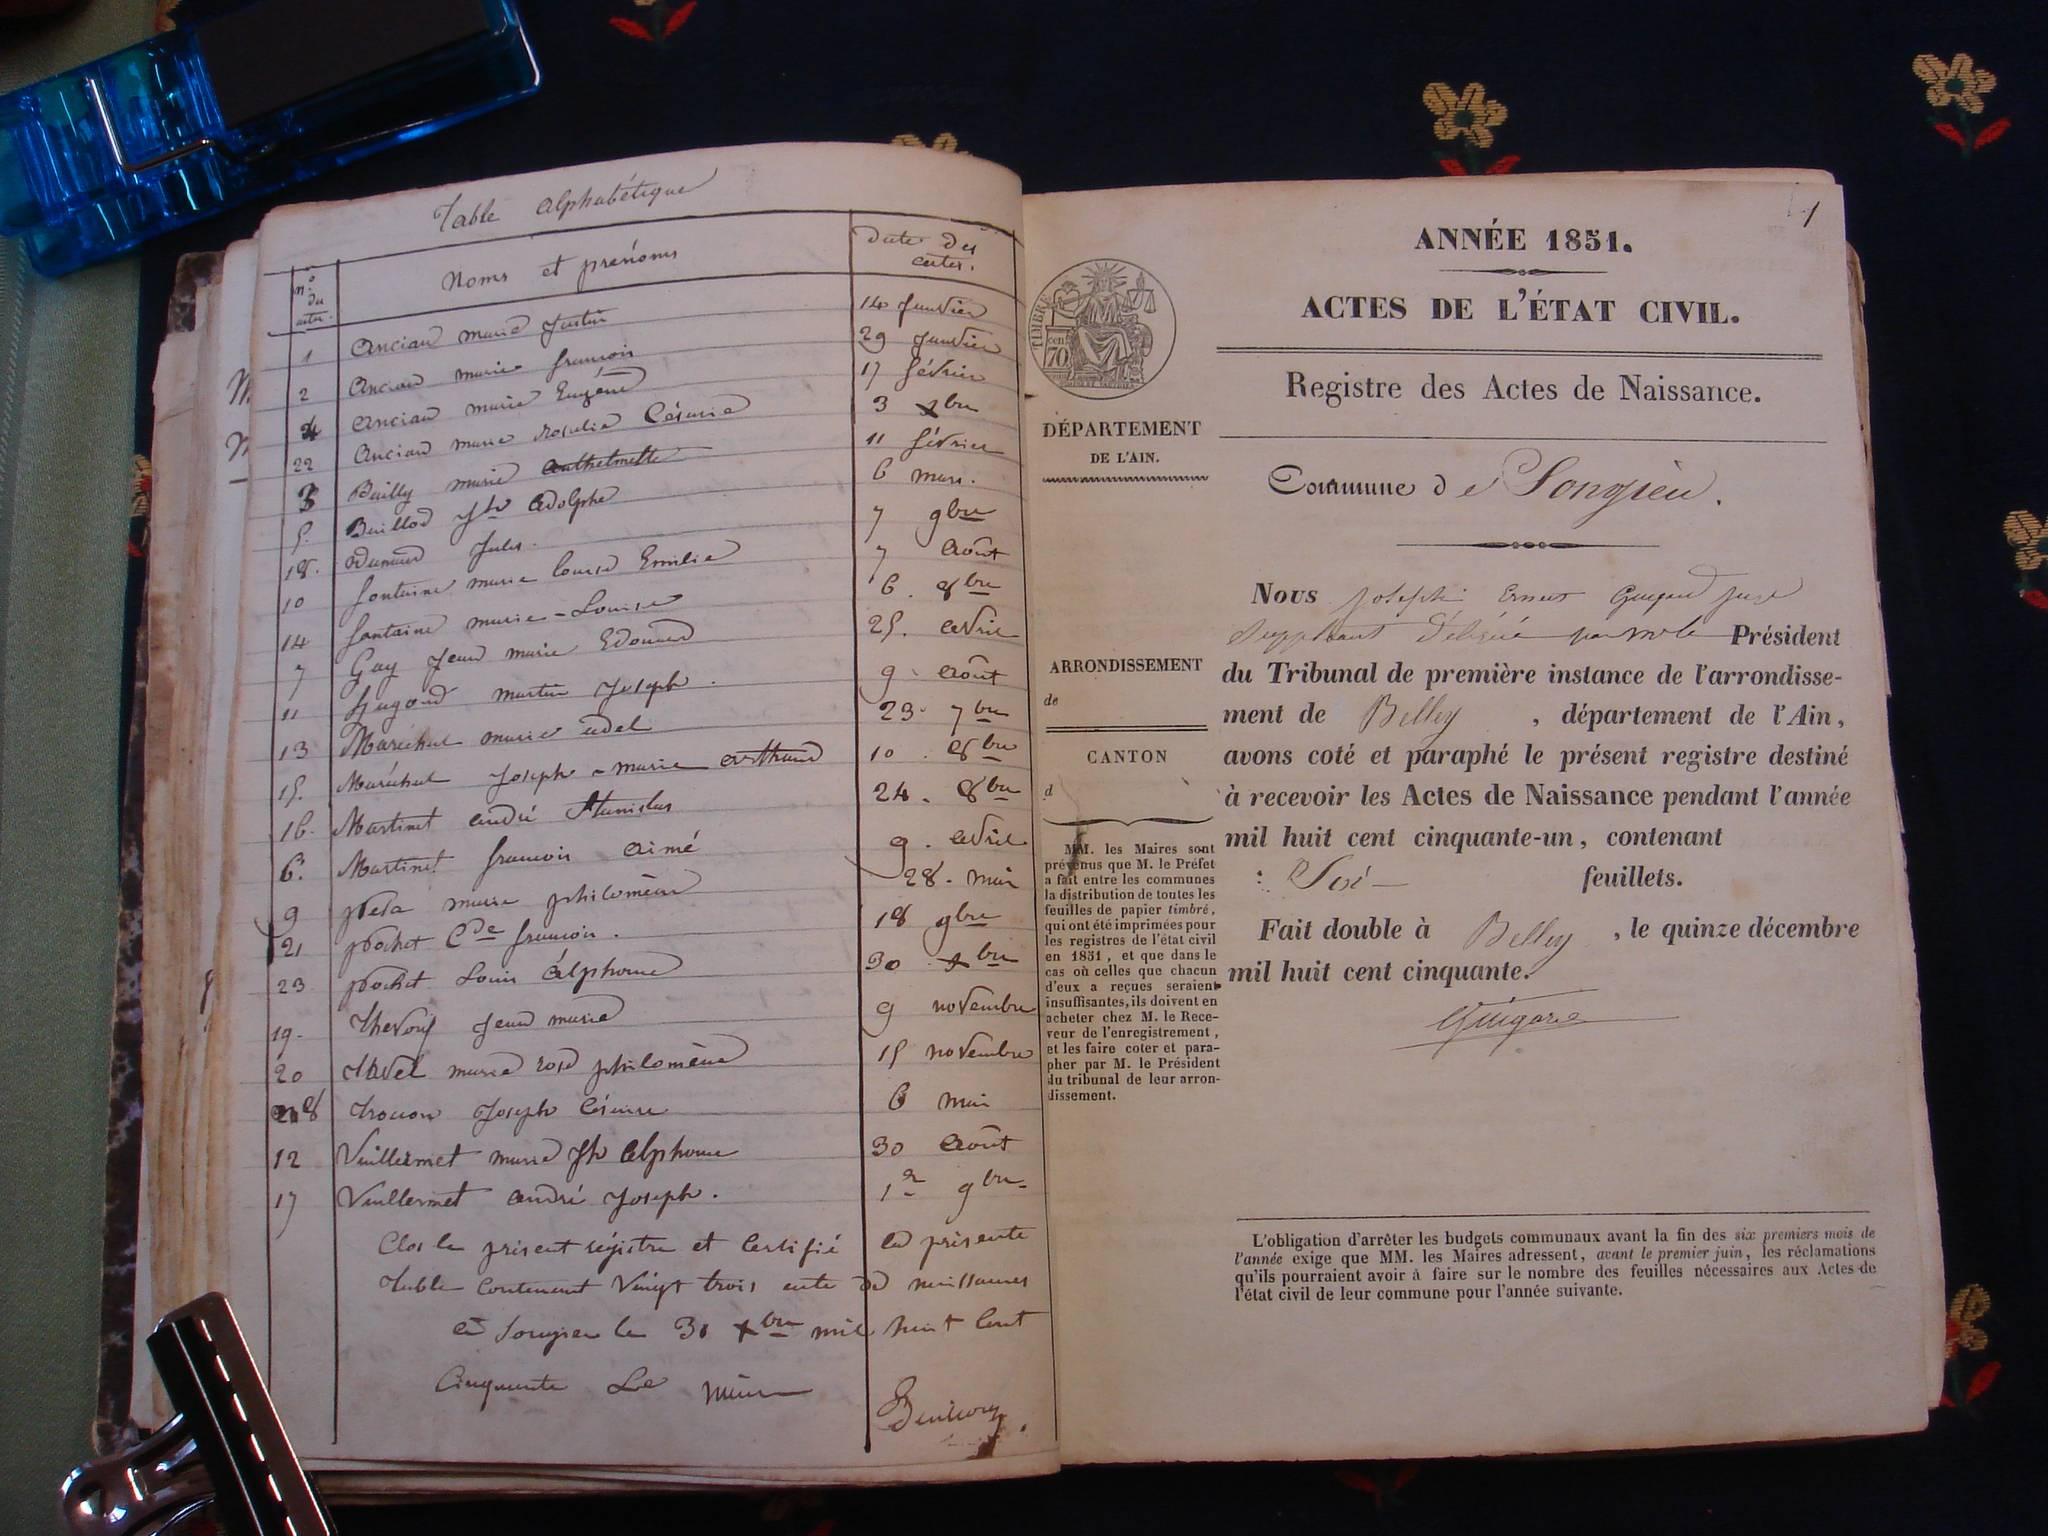 Table alphabétique
n.º du actes.
Noms et prénoms
Date des actes.
1 Ancian marie Justin 14 Janvier
2 Ancian marie françois 29 Janvier
4 Ancian marie Eugénie 17 février
22 Ancian marie rosalie Césarie 3 xbre
3 Bailly marie anthelmette 11 février
5. Jh adolphe 6 mars.
18. Jules. 7 9bre
10 fontaine marie louise Emilie 7 août
14 fontaine marie-Louise 6. 8bre
7 Gay Jean marie Edouard 25. avril
11 hugond martin Joseph. 9. août
13 Maréchal marie adel 23. 7bre
15. Maréchal Joseph-marie 10. 8bre
16. Martinet andré Stanislas 24. 8bre
6. Martinet françois aimé 9. avril
9 marie philomène 28. mai
21 pochet Cde françois. 18 9bre
23 pochet Louis Alphonse 30 xbre
19. Jean marie 9 novembre
20 marie rose philomène 15 novembre
8 Joseph Césaire 6 mai
12 Vuillermet marie Jh alphonse 30 août
17 Vuillermet andré Joseph. 1er 9bre
Clos le présent régistre et certifié la présente
Table contenant vingt trois acte de naissances
à Songieu le 31 xbre mil huit cent
Cinquante Le maire
1
ANNÉE 1851.
ACTES DE L'ÉTAT CIVIL.
TIMBRE
cen. 70
Registre des Actes de Naissance.
DÉPARTEMENT
DE L'AIN.
Commune de Songieu.
Nous Joseph Ernest juge
Suppléant Délégué par Mr le Président
du Tribunal de première instance de l'arrondisse-
ment de Belley, département de l'Ain,
avons coté et paraphé le présent registre destiné
à recevoir les Actes de Naissance pendant l'année
mil huit cent cinquante-un, contenant
: Six feuillets.
Fait double à Belley, le quinze décembre
mil huit cent cinquante.
ARRONDISSEMENT
de
CANTON
d
MM. les Maires sont
prévenus que M. le Préfet
a fait entre les communes
la distribution de toutes les
feuilles de papier timbré,
qui ont été imprimées pour
les registres de l'état civil
en 1851, et que dans le
cas où celles que chacun
d'eux a reçues seraient
insuffisantes, ils doivent en
acheter chez M. le Rece-
veur de l'enregistrement,
et les faire coter et para-
pher par M. le Président
du tribunal de leur arron-
dissement.
L'obligation d'arrêter les budgets communaux avant la fin des six premiers mois de
l'année exige que MM. les Maires adressent, avant le premier juin, les réclamations
qu'ils pourraient avoir à faire sur le nombre des feuilles nécessaires aux Actes de
l'état civil de leur commune pour l'année suivante.